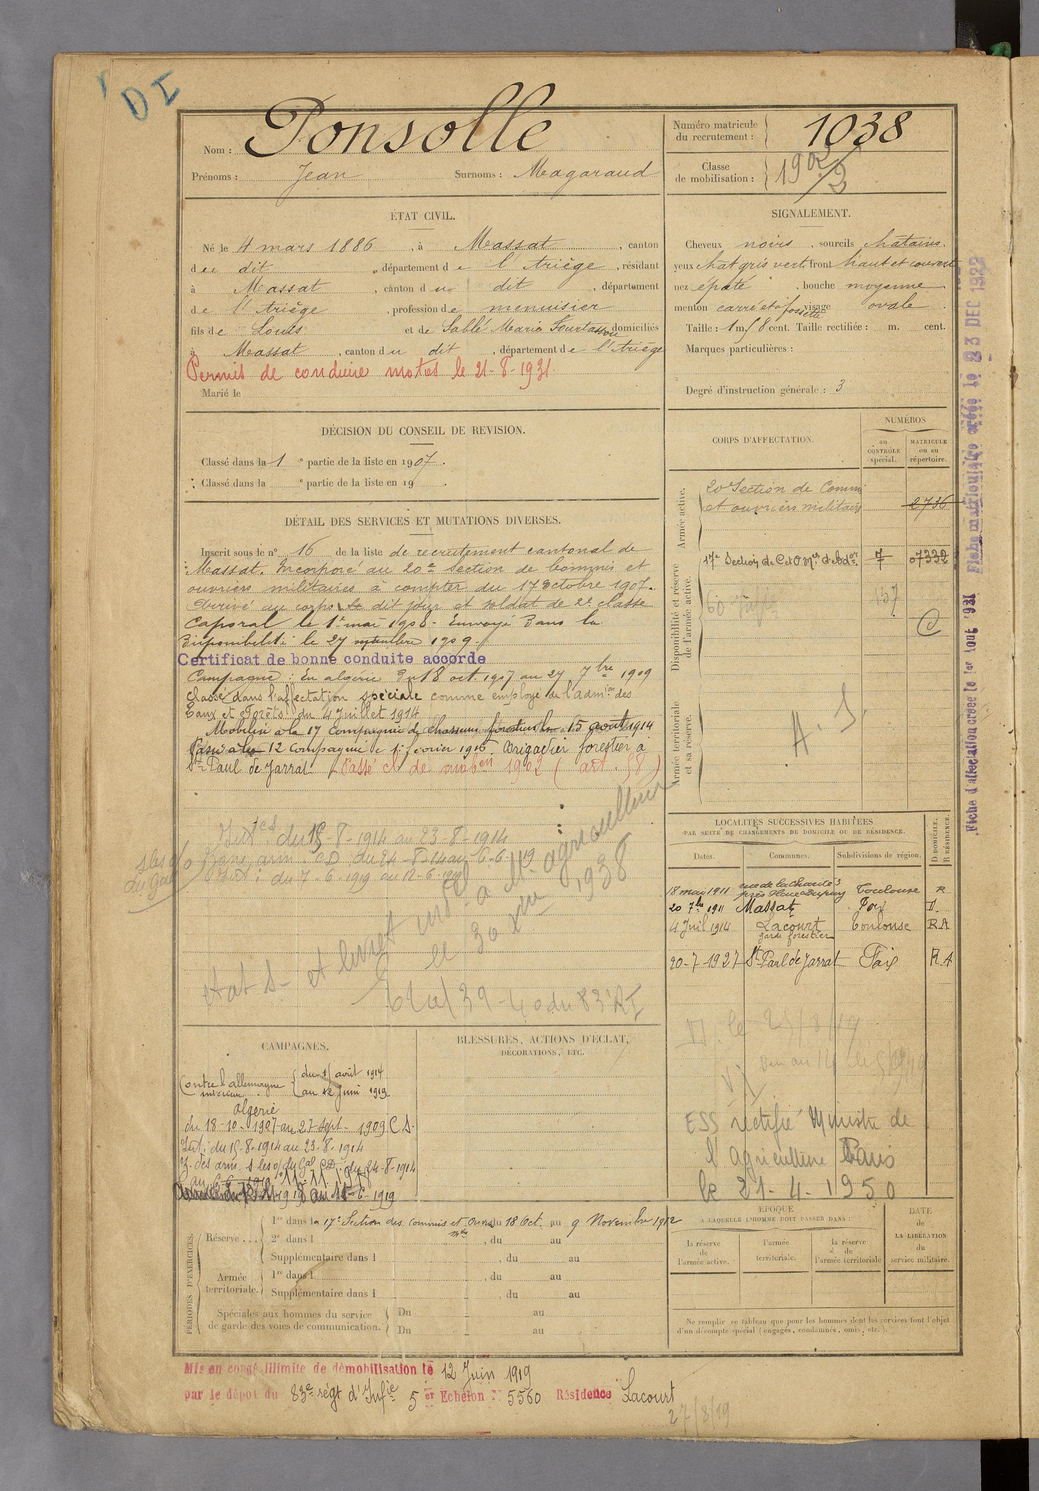 DI
Nom : Ponsolle
Prénoms : Jean Surnoms : Magaraud
Numéro matricule du recrutement : 1038
Classe de mobilisation : 1902/2
ÉTAT CIVIL.
Né le 4 mars 1886, à Massat, canton
du dit, département de l'Ariège, résidant
à Massat, canton du dit, département
de l'Ariège, profession de menuisier
fils de Louis et de Sablé Maria Fourtassou domiciliés
à Massat, canton du dit, département de l'Ariège
Permis de conduire motos le 21-8-1931
Marié le
SIGNALEMENT.
Cheveux noirs, sourcils châtains
yeux chat gris vert, front haut et couvert
nez épaté, bouche moyenne
menton carré et à fossette visage ovale
Taille : 1 m. 58 cent. Taille rectifiée : m. cent.
Marques particulières :
Degré d'instruction générale : 3
DÉCISION DU CONSEIL DE REVISION.
Classé dans la 1e partie de la liste en 1907.
Classé dans la e partie de la liste en 19 .
CORPS D'AFFECTATION.
NUMÉROS
au CONTRÔLE spécial.
MATRICULE ou au répertoire.
Armée active.
20e Section de Commis
et ouvriers militaires 2736
Disponibilité et réserve de l'armée active.
17e Section de C et O Mres d'Adon 7 07332
157
Armée territoriale et sa réserve.
A. S.
DÉTAIL DES SERVICES ET MUTATIONS DIVERSES.
Inscrit sous le n° 16 de la liste de recrutement cantonal de
Massat. Incorporé au 20e Section de Commis et
ouvriers militaires à compter du 17 octobre 1907.
Arrivé au corps le dit jour et soldat de 2e classe
Caporal le 1er mai 1908. Envoyé dans la
disponibilité le 27 septembre 1909.
Certificat de bonne conduite accordé
Campagne : En algérie du 18 oct. 1907 au 27 7bre 1909
Classé dans l'affectation spéciale comme employé de l'admon des
Eaux et Forêts du 4 Juillet 1914
Mobilisé à la 17 Compagnie de Chasseurs forestiers le 15 août 1914
Passé à la 12 Compagnie le 1er février 1916. Brigadier forestier à
St Paul de Jarrat. Passé cl. de mobon 1902 (art. 58)
Int du 15-8-1914 au 23-8-1914
Z des arm. CD du 24-8-14 au 6-6-19
Int : du 7-6-1919 au 12-6-1919
Etat S. et livret indel à M. agriculture
le 30 1938
LOCALITÉS SUCCESSIVES HABITÉES
PAR SUITE DE CHANGEMENTS DE DOMICILE OU DE RÉSIDENCE.
Dates. Communes. Subdivisions de région. D DOMICILE. R RÉSIDENCE.
18 mars 1911 rue de la Charité 3 Toulouse R
20 7bre 1911 Massat Foix D.
4 Juil 1914 Lacourt garde forestier Toulouse RA
20-7-1927 St Paul de Jarrat Foix R.A
D. le 25/8/19
ESS rectifié Ministre de
l'Agriculture Paris
le 21-4-1950
CAMPAGNES.
Contre l'allemagne intérieur du 15 août 1914
au 12 Juin 1919.
Algérie
du 18-10-1907 au 27 Sept. 1909 C.S.
Int : du 15-8-1914 au 23-8-1914
BLESSURES, ACTIONS D'ÉCLAT,
DÉCORATIONS, ETC.
PÉRIODES D'EXERCICES.
Réserve . . .
1re dans la 17e Section des commis et Ouvr. Mres du 18 Oct. au 9 Novembre 1912
2e dans l , du au
Supplémentaire dans l , du au
Armée territoriale.
1re dans l , du au
Supplémentaire dans l , du au
Spéciales aux hommes du service de garde des voies de communication.
Du au
Du au
ÉPOQUE
À LAQUELLE L'HOMME DOIT PASSER DANS :
la réserve de l'armée active.
l'armée territoriale.
la réserve de l'armée territoriale
DATE DE LA LIBÉRATION du service militaire.
Ne remplir ce tableau que pour les hommes dont les services font l'objet
d'un décompte spécial (engagés, condamnés, omis, etc.).
Mis en congé illimité de démobilisation le 12 Juin 1919
par le dépôt du 83e régt d'Infie 5er Echelon N° 5560 Résidence Lacourt
27/8/19
Fiche matriculaire créée le 23 DEC 1922
Fiche d'affectation créée le 1er Août 1931